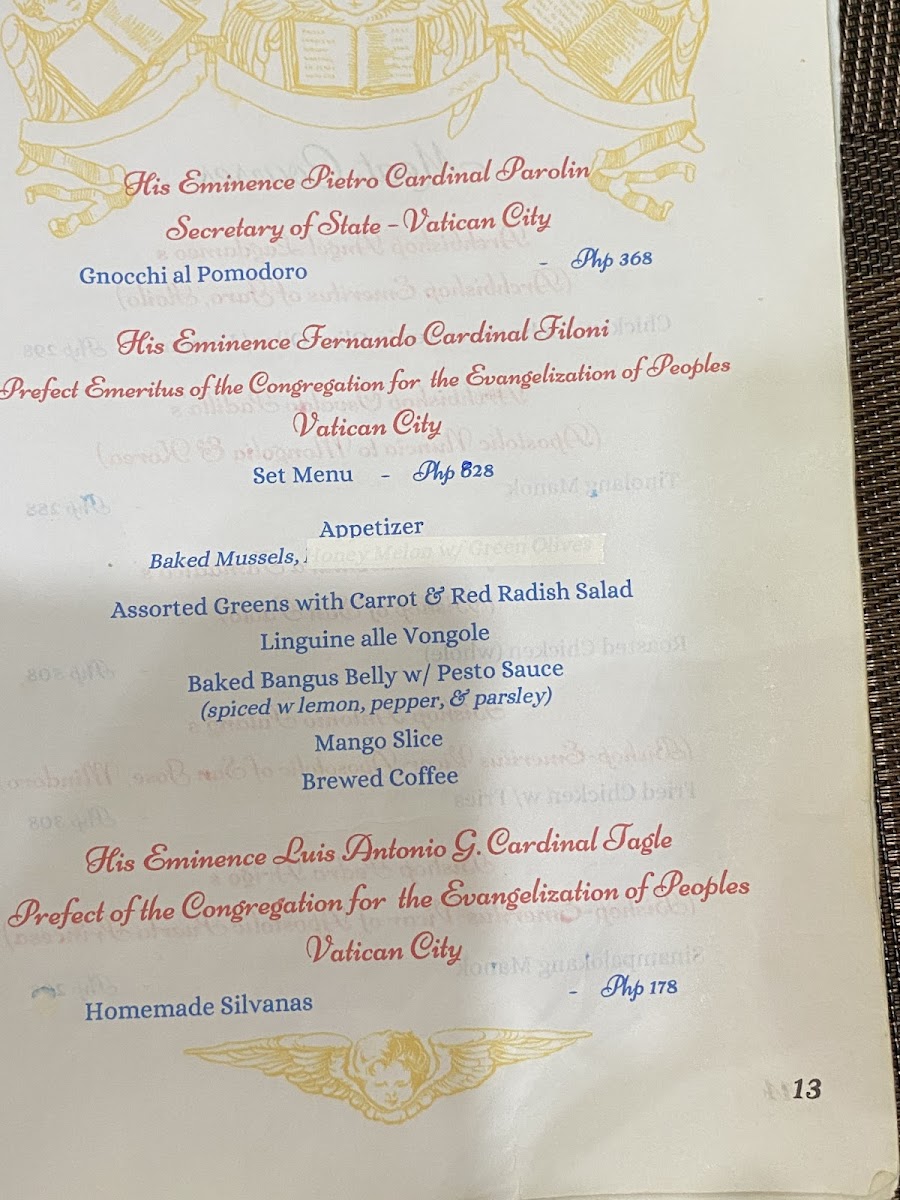 His Eminence Pietro Cardinal Parolin
Secretary of State - Vatican City
Gnocchi al Pomodoro - Php 368
His Eminence Fernando Cardinal Filoni
Prefect Emeritus of the Congregation for the Evangelization of Peoples
Vatican City
Set Menu - Php 828
Appetizer
Baked Mussels, Honey Melon w/ Green Olives
Assorted Greens with Carrot & Red Radish Salad
Linguine alle Vongole
Baked Bangus Belly w/ Pesto Sauce
(spiced w lemon, pepper, & parsley)
Mango Slice
Brewed Coffee
His Eminence Luis Antonio G. Cardinal Tagle
Prefect of the Congregation for the Evangelization of Peoples
Vatican City
Homemade Silvanas - Php 178
13